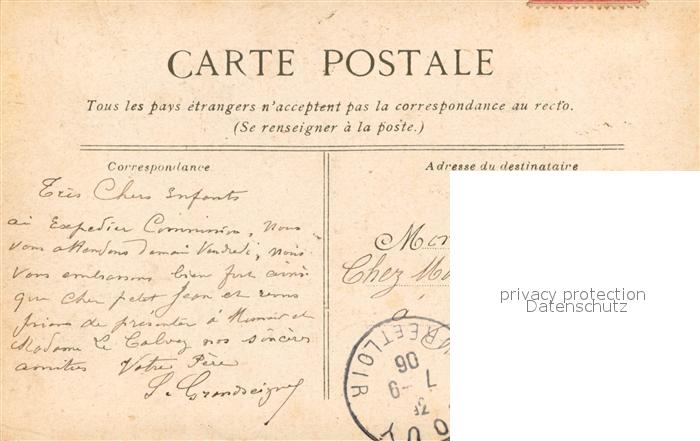 CARTE POSTALE
Tous les pays étrangers n'acceptent pas la correspondance au recto.
(Se renseigner à la poste.)
Correspondance
Adresse du destinataire
Très Chers Enfants
ai Expedier Commission, Nous
vous attendons demain Vendredi, nous
vous embrassons bien fort ainsi
que cher petit Jean et vous
prions de présenter à Monsieur et
Madame Le Calvez nos sincères
amitiés Votre Père
Mon
Chez M
à
RE ET LOIR
7-9
06
privacy protection
Datenschutz